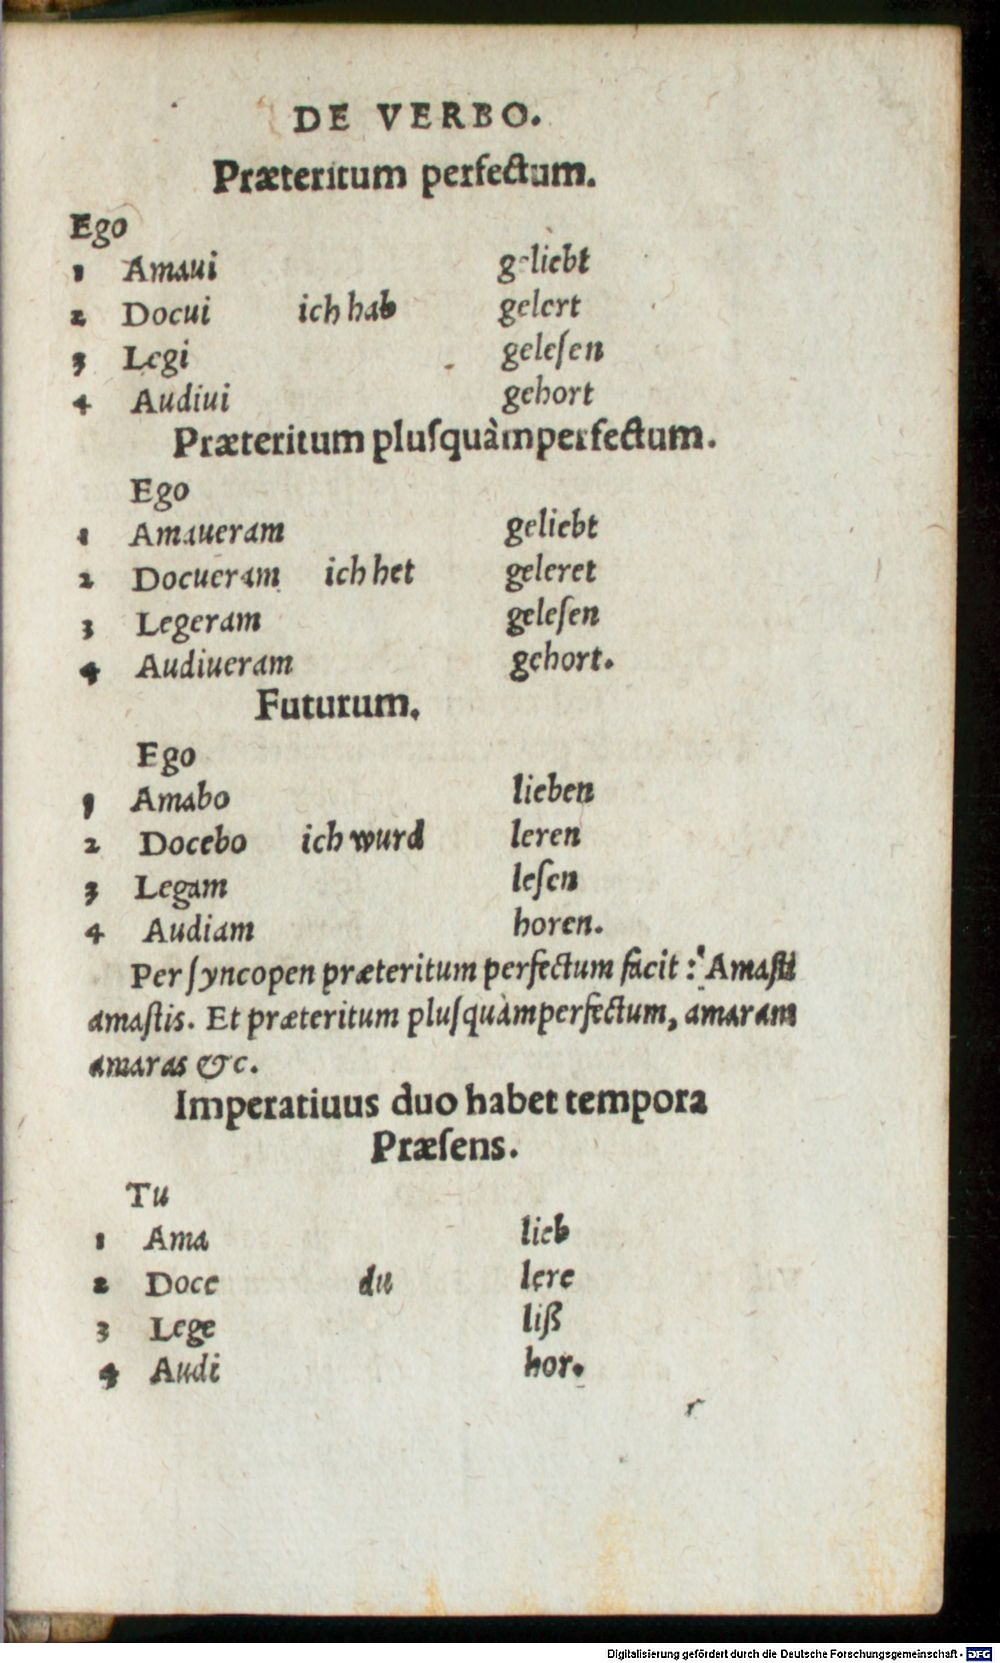 DE VERBO.
Præteritum perfectum.
Ego
1 Amaui geliebt
2 Docui ich hab gelert
3 Legi geleſen
4 Audiui gehort
Præteritum pluſquàmperfectum.
Ego
1 Amaueram geliebt
2 Docueram ich het geleret
3 Legeram geleſen
4 Audiueram gehort.
Futurum.
Ego
1 Amabo lieben
2 Docebo ich wurd leren
3 Legam leſen
4 Audiam horen.
Per ſyncopen præteritum perfectum facit : Amaſti
amaſtis. Et præteritum pluſquàmperfectum, amaram
amaras &c.
Imperatiuus duo habet tempora
Præſens.
Tu
1 Ama lieb
2 Doce du lere
3 Lege liß
4 Audi hor.
r
Digitalisierung gefördert durch die Deutsche Forschungsgemeinschaft - DFG